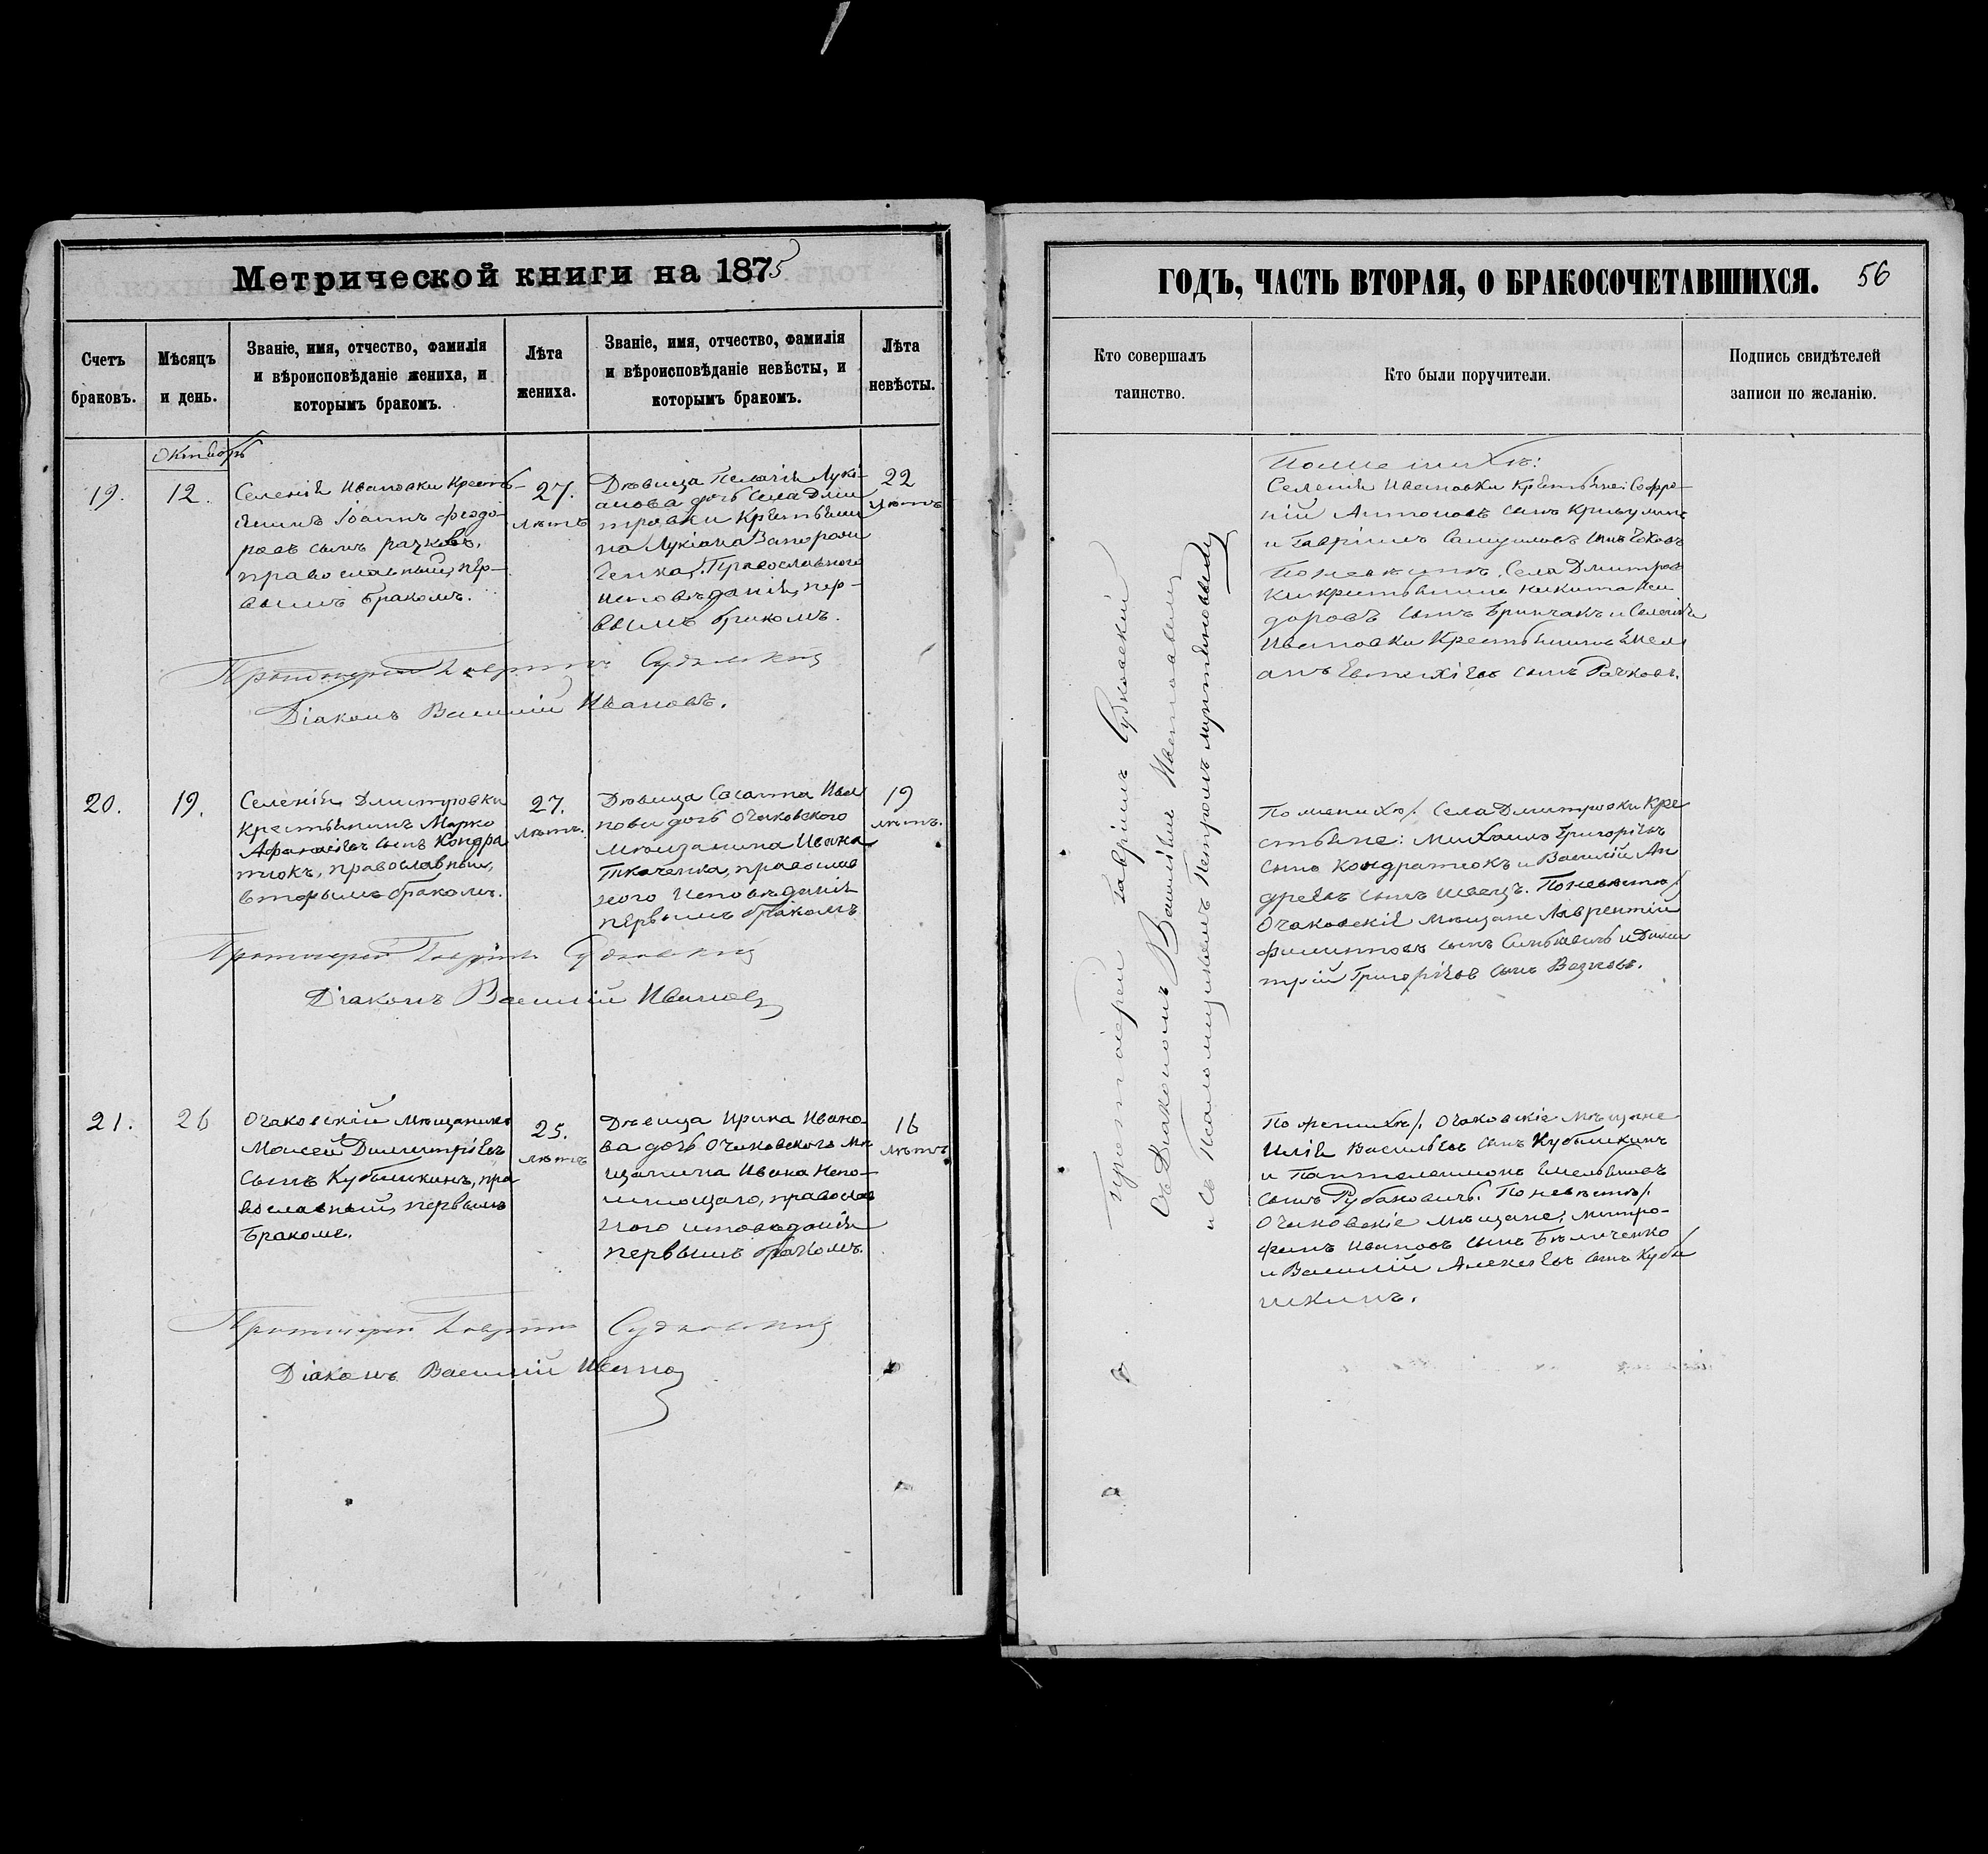 Метрической книги на 1875
Счетъ браковъ.
Мѣсяцъ и день.
Званіе, имя, отчество, фамилія
и вѣроисповѣданіе жениха, и
которымъ бракомъ.
Лѣта жениха.
Званіе, имя, отчество, фамилія
и вѣроисповѣданіе невѣсты, и
которымъ бракомъ.
Лѣта невѣсты.
Октябрь
19.
12.
Селенія Ивановки Кресть-
янинъ Іоаннъ Феодо-
ровъ сынъ Рачковъ,
православный, пер-
вымъ бракомъ.
27.
лѣтъ
Дѣвица Пелагія Луkі-
анова дочь села Дми
тровки Крестьяни
на Лукіана Запорож
ченка, Православнаго
исповѣданія, пер-
вымъ бракомъ.
22
лѣтъ
Протоіерей Гавріилъ Судковскій
Діаконъ Василій Ивановъ.
20.
19.
Селенія Дмитровки
Крестьянинъ Марко
Афанасіевъ сынъ Кондра
тюкъ, православный,
вторымъ бракомъ.
27.
лѣтъ.
Дѣвица Сосанна Ива
нова дочь Очаковскаго
мѣщанина Ивана
Ткаченка, православ
наго исповѣданія
первымъ бракомъ
19
лѣтъ.
Протоіерей Гавріилъ Судковскій
Діаконъ Василій Ивановъ
21.
26
Очаковскій мѣщанинъ
Моисей Димитріевъ
сынъ Кубышкинъ, пра
вославный, первымъ
бракомъ.
25.
лѣтъ
Дѣвица Ирина Ивано
ва дочь Очаковскаго мѣ
щанина Ивана Непо-
мнющаго, православ
наго исповѣданія
первымъ бракомъ.
16
лѣтъ
Протоіерей Гавріилъ Судковскій
Діаконъ Василій Ивановъ
ГОДЪ, ЧАСТЬ ВТОРАЯ, О БРАКОСОЧЕТАВШИХСЯ.
56
Кто совершалъ
таинство.
Кто были поручители.
Подпись свидѣтелей
записи по желанію.
Протоіерей Гавріилъ Судковскій
съ Діакономъ Василіемъ Ивановымъ
и съ Псаломщикомъ Петромъ
По женихѣ:
Селенія Ивановки Крестьяне: Софро-
ній Антоновъ сынъ
и Гавріилъ Самуиловъ сынъ
По невѣстѣ: Села Дмитров
ки крестьянинъ Никита
доровъ сынъ и Селенія
Ивановки Крестьянинъ Емел
анъ Евтихіевъ сынъ Рачковъ.
По женихѣ/. Села Дмитровки Кре
стьяне: Михаилъ Григоріевъ
сынъ Кондратюкъ и Василій Ан
дреевъ сынъ Швецъ. По невѣстѣ/.
Очаковскіе мѣщане Лаврентій
Филиповъ сынъ и Дими
трій Григоріевъ сынъ Возновъ.
По женихѣ/. Очаковскіе мѣщане
Илія Васильевъ сынъ Кубышкинъ
и Пантелеимонъ Емельяновъ
сынъ Рубановичъ. По невѣстѣ/.
Очаковскіе мѣщане; Митро-
фанъ Ивановъ сынъ Бѣличенко
и Василій Алексѣевъ сынъ Кубы
шкинъ.